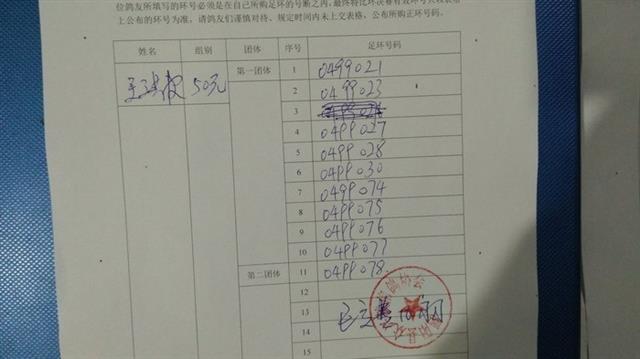 位鸽友所填写的环号必须是在自己所购足环的号断之内,最终特比环决赛有效环号
上公布的环号为准,请鸽友们谨慎对待、规定时间内未上交表格,公布所购正环号码。
姓名 组别 团体 序号 足环号码
50元 第一团体 1 0499021
2 0499023
3
4 0499027
5 0499028
6 0499030
7 0499074
8 0499075
9 0499076
10 0499077
第二团体 11 0499078
12
13
14
15
鸽协会